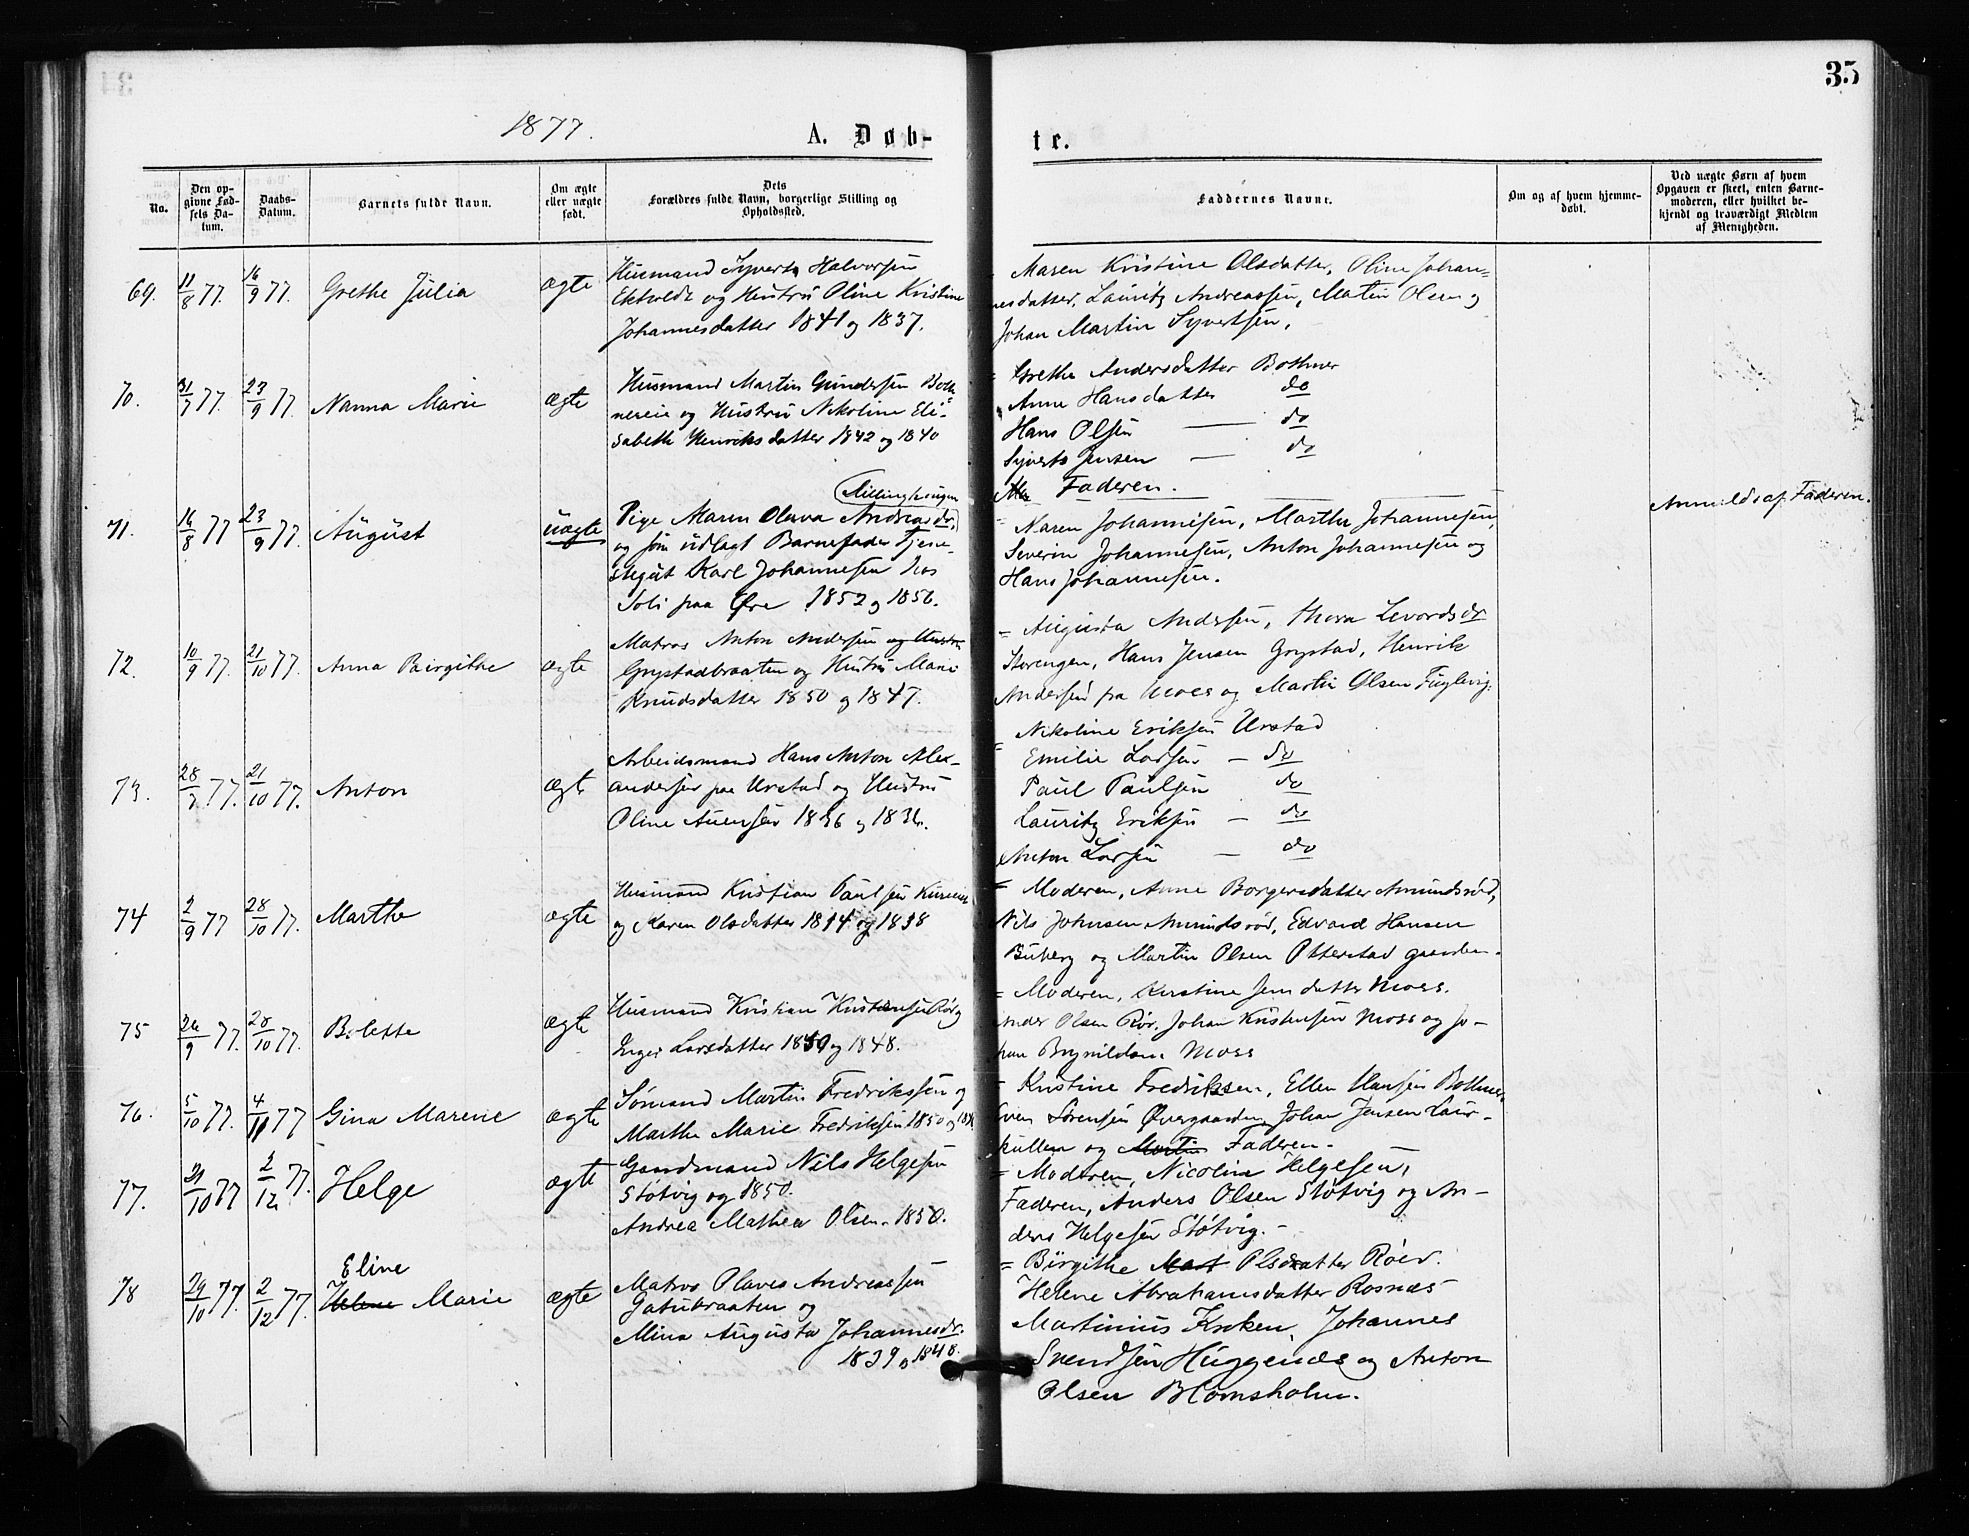 35
1877.
A. Døb-
te.
No.
Den op-
givne Fød-
sels Da-
tum.
Daabs-
Datum.
Barnets fulde Navn.
Om ægte
eller uægte
født.
Dets
Forældres fulde Navn, borgerlige Stilling og
Opholdssted.
Faddernes Navne.
Om og af hvem hjemme-
døbt.
Ved uægte Børn af hvem
Opgaven er skeet, enten Barne-
moderen, eller hvilket be-
kjendt og troværdigt Medlem
af Menigheden.
69. 11/8 77. 16/9 77. Grethe Julia ægte
Husmand Syvert Halvorsen
Ekholdt og Hustru Oline Kristine
Johannesdatter 1841 og 1837.
= Maren Kristine Olsdatter, Oline Johan=
nesdatter, Lauritz Andreassen, Martin Olsen og
Johan Martin Syvertsen.
70. 31/7 77. 23/9 77. Nanna Marie ægte
Husmand Martin Gundersen Both=
nereie og Hustru Nikoline Eli-
sabeth Henriksdatter 1842 og 1840
= Grethe Andersdatter Bothner
Anne Hansdatter do
Hans Olsen — do
Syvert Jensen — do
Faderen.
71. 16/8 77 23/9 77. August uægte
Pige Maren Olava Andreasdr.
og som udlagt Barnefader Tjene-
stegut Karl Johannesen hos
Soli paa Øre 1852 og 1856.
= Maren Johannesen, Marthe Johannesen,
Severin Johannesen, Anton Johannesen og
Hans Johannesen.
Anmeldt af Faderen.
72. 10/9 77. 21/10 77. Anna Birgithe ægte
Matros Anton Andersen og Hustru
Grystadbraaten og Hustru Marie
Knudsdatter 1850 og 1847.
= Augusta Andersen, Thora Levordsdr
Storengen, Hans Jensen Grystad, Henrik
Andersen fra Moss og Martin Olsen Fuglevig.
73. 28/7 77. 21/10 77. Anton ægte
Arbeidsmand Hans Anton Alex-
andersen paa Urstad og Hustru
Oline 1836 og 1836.
= Nikoline Eriksen Urstad
Emilie Larsen — do
Paul Paulsen do
Lauritz Eriksen — do
Anton Larsen — do
74 2/9 77 28/10 77. Marthe ægte
Husmand Kristian Paulsen
og Karen Olsdatter 1834 og 1838
= Moderen, Anne Borgersdatter Amundsrød,
Nils Johnsen Amundsrød, Edvard Hansen
Buberg og Martin Olsen Otterstad
75 26/9 77. 28/10 77. Bolette ægte
Husmand Kristian Kristensen Rør og
Inger Larsdatter 1850 og 1848.
= Moderen, Kirstine Jensdatter Moss.
Ander Olsen Rør, Johan Kristensen Moss og Jo-
han Brynildsen Moss
76. 5/10 77. 4/11 77 Gina Marenie ægte
Sømand Martin Fredrikssen og
Marthe Marie Fredriksen 1850 og
= Kristine Fredriksen, Ellen Hansen Bothner
Sven Sørensen Øvergaarden, Johan Jensen Laur-
kullen og Martin Faderen. —
77. 21/10 77 2/12 77. Helge ægte
Gaardmand Nils Helgesen
Støtvig og 1850.
Andrea Mathea Olsen. 1850.
= Moderen, Nicoline Helgesen,
Faderen, Anders Olsen Støtvig og An-
ders Helgesen Støtvig. —
78 29/10 77. 2/12 77. Eline
Helene Marie ægte
Matros Olaves Andreassen
Gatubraaten og
Mina Augusta Johannesdr.
1839 og 1848.
= Birgithe Mart Olsdatter Røer.
Helene Abrahamsdatter Rosnæs
Martinius Kroken, Johannes
Svendsen Huggenæs og Anton
Olsen Blomsholm.